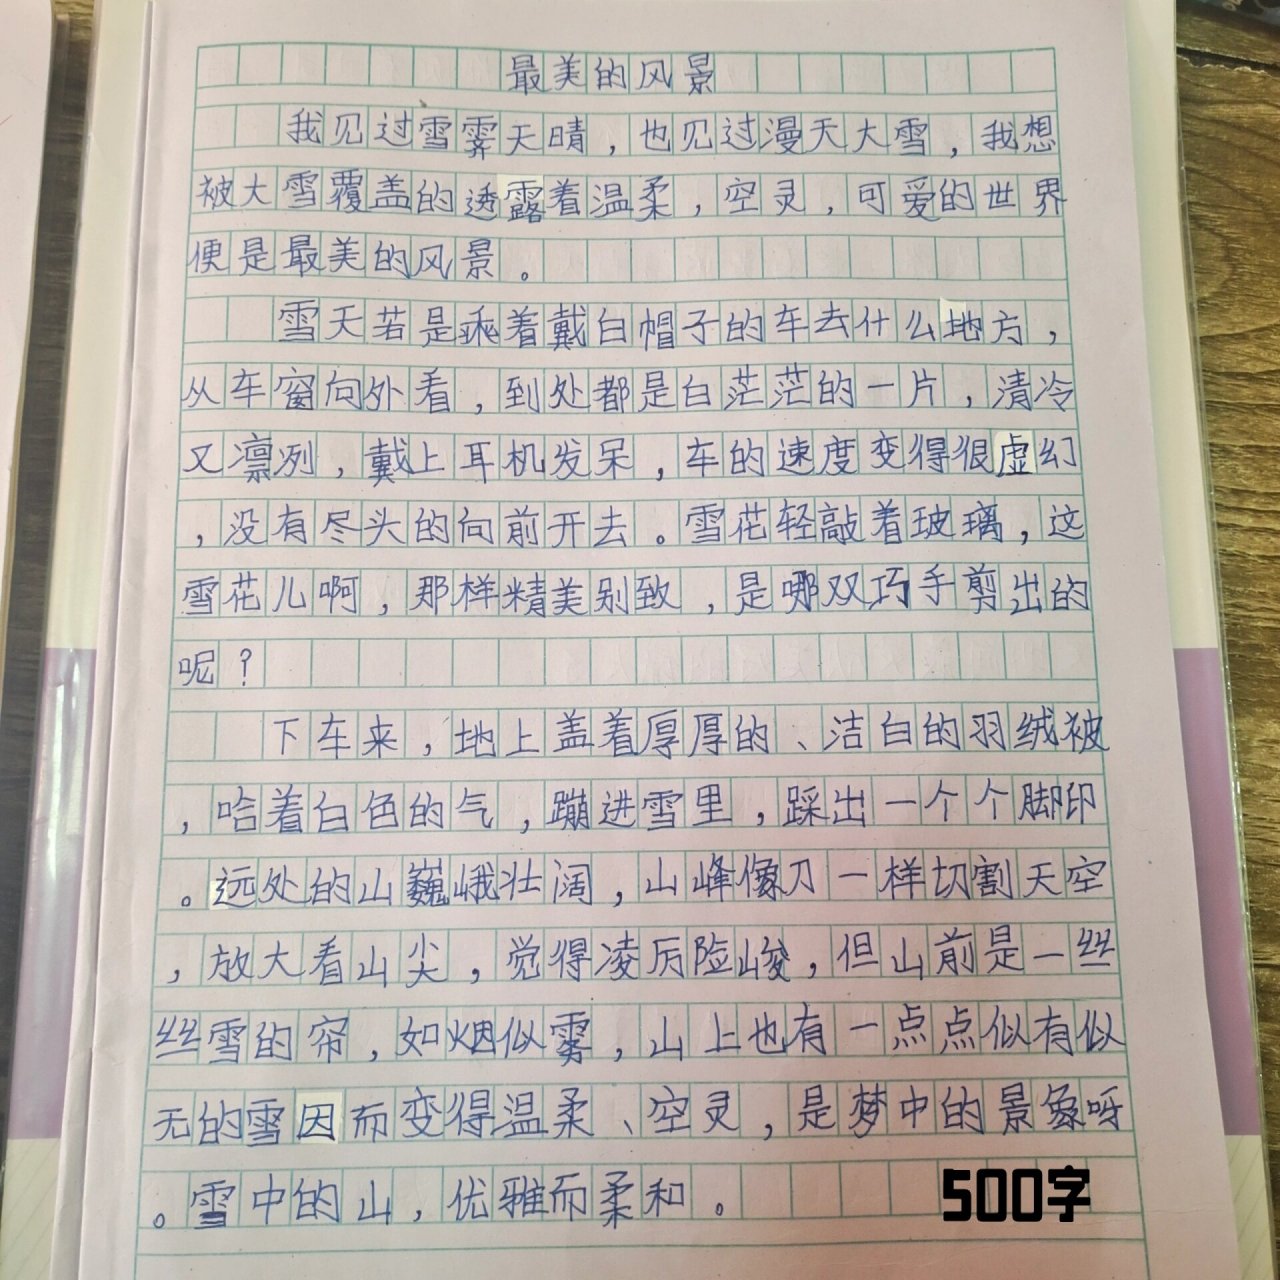 最美的风景
我见过雪霁天晴，也见过漫天大雪，我想
被大雪覆盖的透露着温柔，空灵，可爱的世界
便是最美的风景。
雪天若是乘着戴白帽子的车去什么地方，
从车窗向外看，到处都是白茫茫的一片，清冷
又凛冽，戴上耳机发呆，车的速度变得很虚幻
，没有尽头的向前开去。雪花轻敲着玻璃，这
雪花儿啊，那样精美别致，是哪双巧手剪出的
呢？
下车来，地上盖着厚厚的、洁白的羽绒被
，哈着白色的气，蹦进雪里，踩出一个个脚印
。远处的山巍峨壮阔，山峰像刀一样切割天空
，放大看山尖，觉得凌厉险峻，但山前是一丝
丝雪的帘，如烟似雾，山上也有一点点似有似
无的雪因而变得温柔、空灵，是梦中的景象呀
。雪中的山，优雅而柔和。
500字